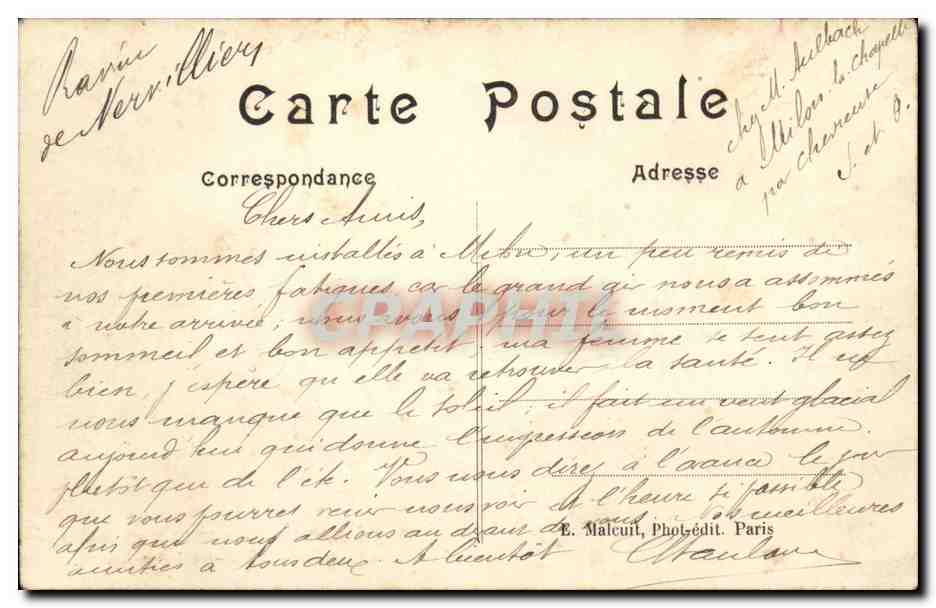 Ravin
de Nervilliers
Carte Postale
chez M. Aulbach
à Milon-la-chapelle
par chevreuse
S. et O.
Correspondance
Adresse
Chers Amis,
Nous sommes installés à Milon, un peu remis de
nos premières fatigues, car le grand air nous a assommés
à notre arrivée, nous avons pour le moment bon
sommeil et bon appétit, ma femme se sent assez
bien, j'espère qu'elle va retrouver la santé. Il ne
nous manque que le soleil, il fait un vent glacial
aujourd'hui qui donne l'impression de l'automne
plutôt que de l'été. Vous nous direz à l'avance le jour
que vous pourrez venir nous voir et l'heure si possible
afin que nous allions au devant de vous. Nos meilleures
amitiés à tous deux. A bientôt
E. Malcuit, Phot-édit. Paris
CRAPHIL